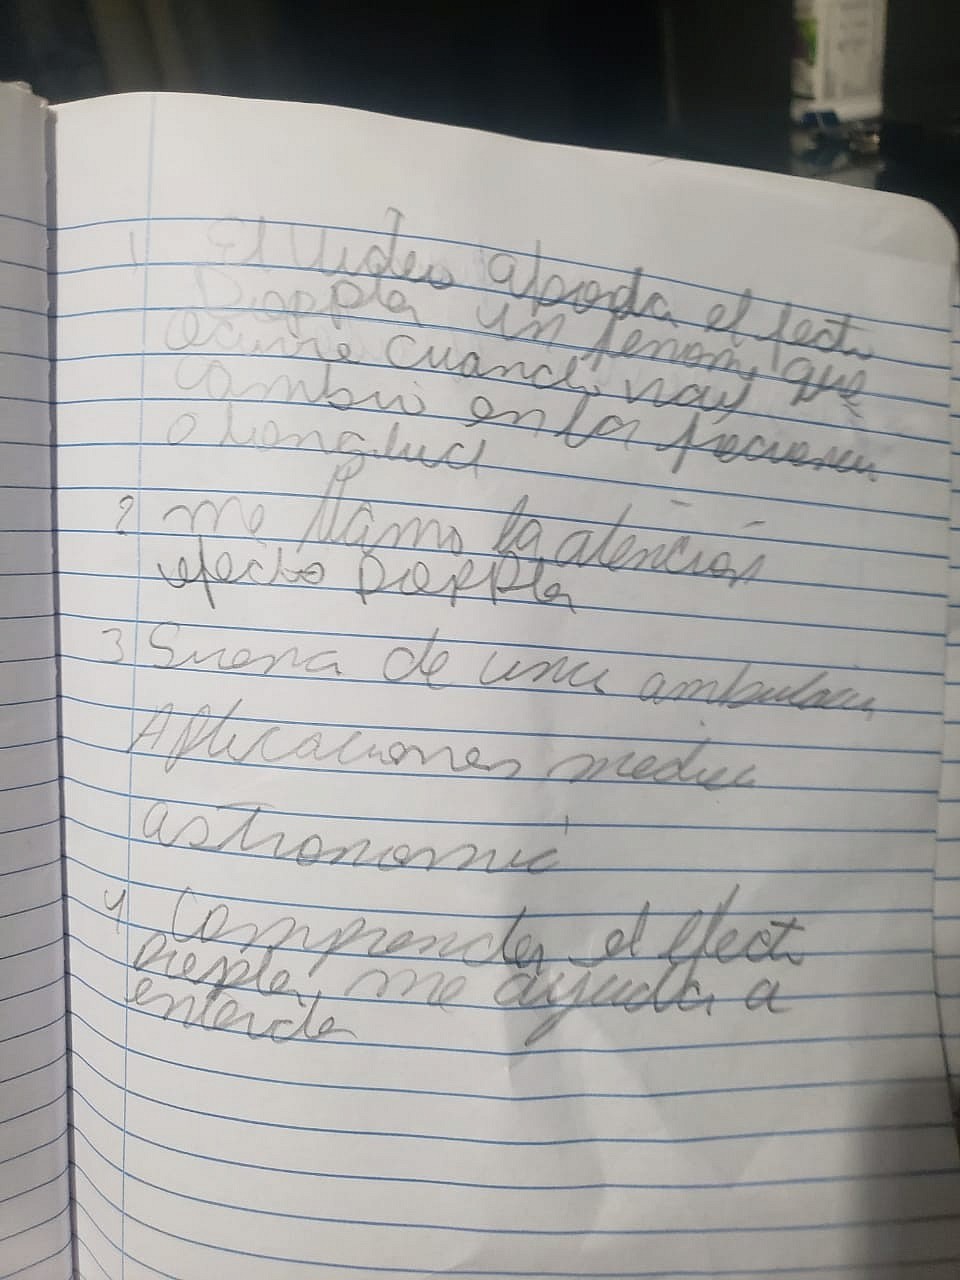 1 El Video aborda el fect
Doppler un fenom que
ocurre cuando hay
cambio en la frecuenci
o longitud
2 me llamo la atención
efecto Doppler
3 Suena de una ambulanci
Aplicaciones medica
astronomic
4 Comprender el efect
Doppler, me ayuda a
entender